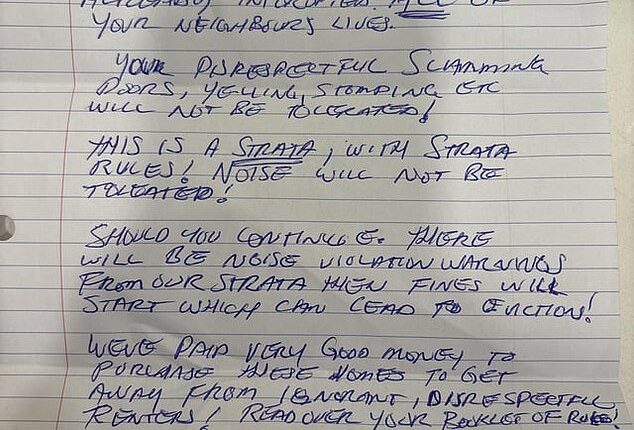 INTERRUPTED ALL OF
YOUR NEIGHBOURS LIVES.
YOUR DISRESPECTFUL SLAMMING
DOORS, YELLING, STOMPING ETC
WILL NOT BE TOLERATED!
THIS IS A STRATA, WITH STRATA
RULES! NOISE WILL NOT BE
TOLEATED!
SHOULD YOU CONTINUE. THERE
WILL BE NOISE VIOLATION WARNINGS
FROM OUR STRATA THEN FINES WILL
START WHICH CAN LEAD TO EVICTION!
WEVE PAID VERY GOOD MONEY TO
PURCHASE THESE HOMES TO GET
AWAY FROM IGNORANT, DISRESPECTFUL
RENTERS! READ OVER YOUR BOOKLET OF RULES!